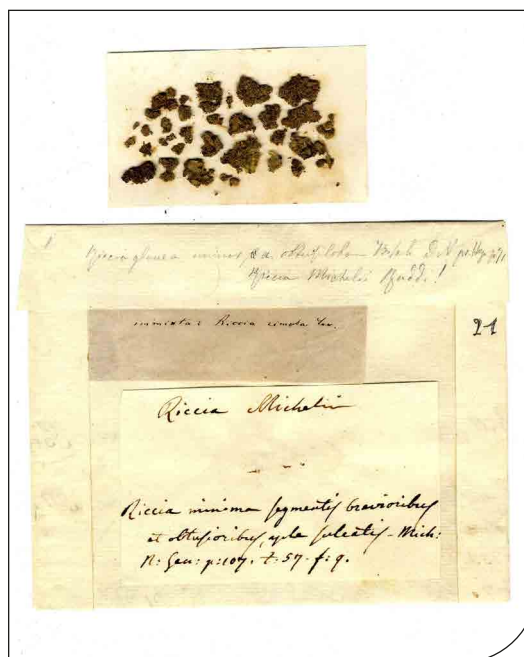 Riccia glauca minor, α obtusiloba Bisch.
Riccia Michelii Raddi!
immixta: Riccia
21
Riccia Michelii
Riccia minima segmentis brevioribus
et obtusioribus, apice sulcatis - Mich:
N: Gen: p: 107. t: 57. f: 9.